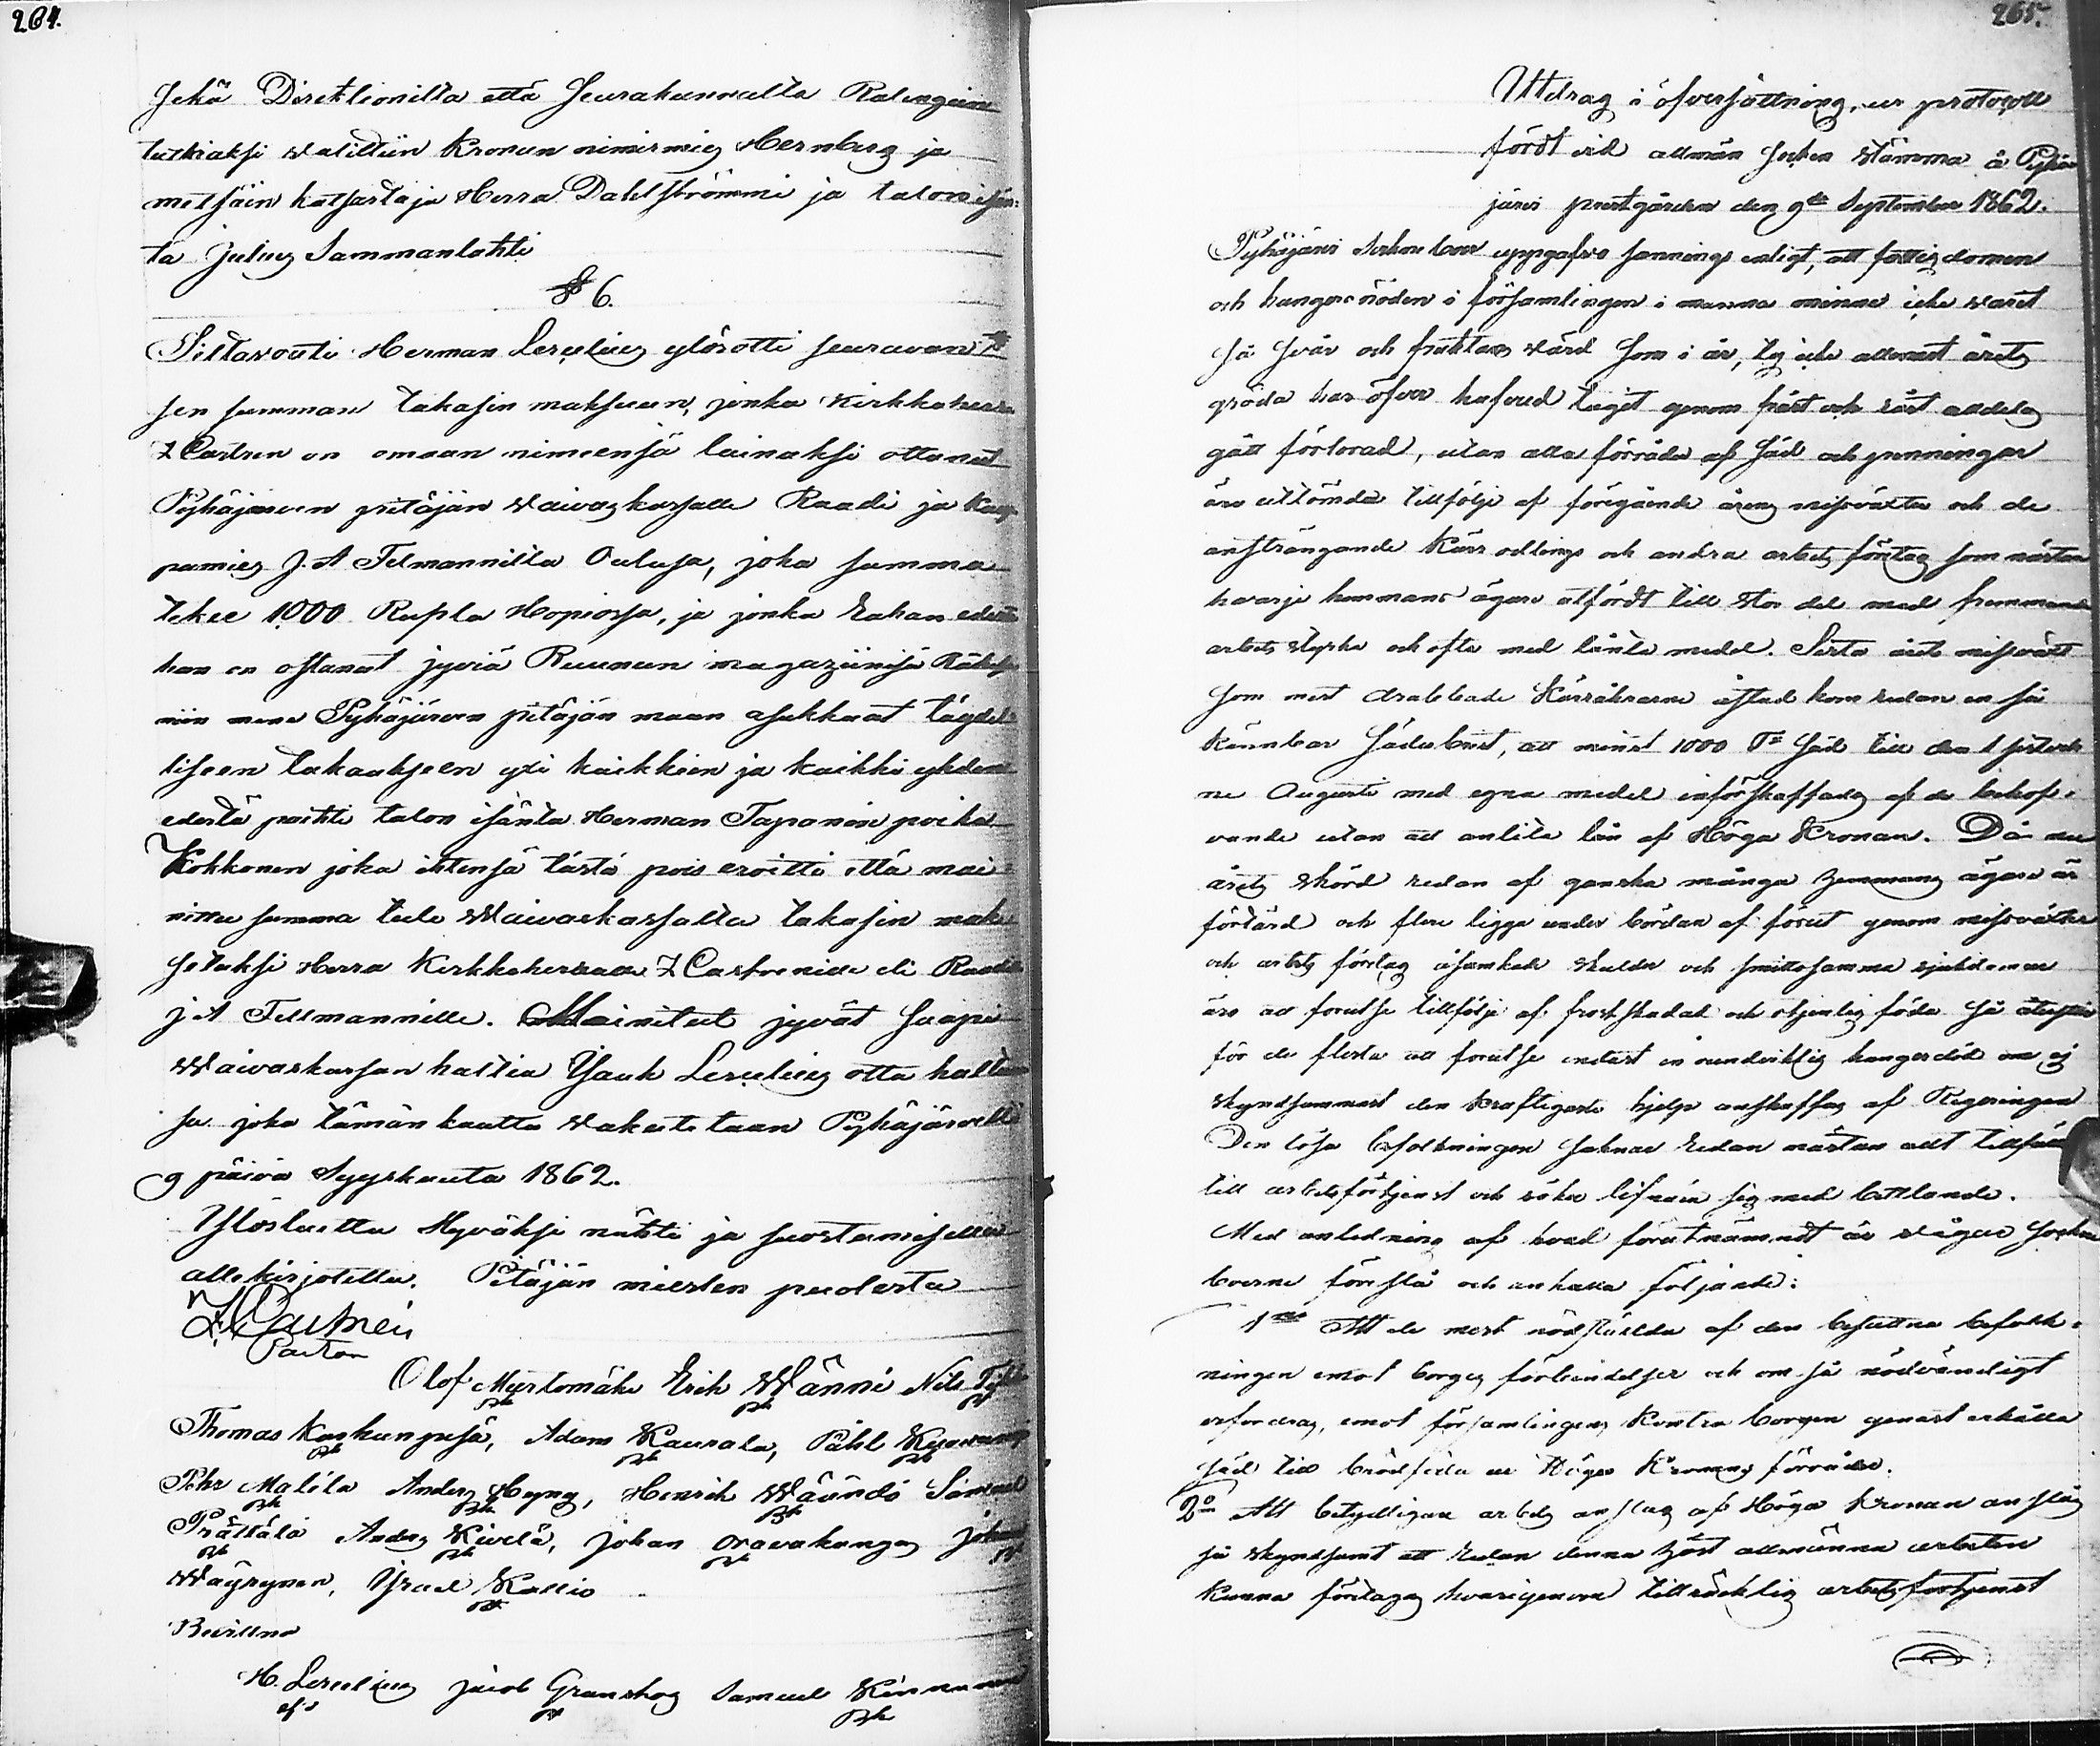 264.
Sekä Direktionilta että Seurakunnalta Rakingein
tutkiaksi walittiin Kronun nimismies Hernberg ja
metsäin katsastaja Herra Dahlströmmi ja talon isän-
tä Julius Sammanlahti
§ 6.
Siltavouti Herman Leselius ylösotti seuravan
sen summan takasin maksuun, jonka Kirkkoherra
Z Castren on omaan nimeensä lainaksi ottanut
Pyhäjärven pitäjän Waivaskassalle Raadi ja Kaup-
pamies J. A Felmannilta Oulusa, joka summa
tekee 1000 Rupla Hopiossa, ja jonka Rahan edestä
han on ostanut jyviä Ruunun magaziinisä
niin mene Pyhäjärven pitäjän maan asukkaat täydel-
liseen takaukseen yxi kaikkein ja kaikki yhden
edestä paitsi talon isäntä Herman Tapanin poika
Kokkonen joka ittensä tästä pois eroitti että mai-
nittu summa tule Waivaskassalta takasin mak-
setuksi Herra Kirkkoherralle Z Castrenille eli Raadi
J A Fellmannille. Mainitut jyvät saapi
Waivaskassan haltia Isaak Leselius otta haltuun-
sa joka tämän kautta wakuutetaan Pyhäjärvellä
9 päivä Syyskuuta 1862.
Ylösluettu Hyväksi nähti ja suostumisella
allekirjotettu. Pitäjän miesten puolesta
Z. Castrén
Pastor
Olof Myrlomäki Erik Wänni Nils
Thomas Kaskunpesä, Adam Kaurala, Påhl
Pehr Malila Anders Heyny, Henrik Wäändö Samuel
Prättälä Anders Kivelä, Johan Oravakangas Johan
Wäyrynen, Israel Kallio
Bevittna
H. Leselius Jacob Granskog Samuel Kinnunen
265.
Utdrag i öfversättning, ur protocoll
fördt vid allmän Socken Stämma å Pyhä-
järvi prestgården den 9de September 1862.
Pyhäjärvi Sockneboer uppgafvo sannings enligt, att fattigdomen
och hungersnöden i församlingen i manna minne icke warit
så svår och fruktans värd som i år, ty icke allenast årets
gröda har öfver hufvud taget genom frost och röst alldeles
gått förlorad, utan alla förråder af säd och penningar
äro uttömda tillfölje af föregående årens missväxter och de
ansträngande Kärr odlings och andra arbets företag som nästan
hvarje hemmans ägare utfördt till stor del med främmande
arbets styrka och ofta med lånta medel. Sista årets missväxt
som mest drabbade Kärråkrarne åstad kom redan en så
kännbar sädesbrist, att minst 1000 Tr säd till den 1 sistlede-
ne Augusti med egna medel införskaffades af de behöf-
vande utan att anlita lån af Höga Kronan. Då nu
årets skörd redan af ganska många hemmans ägare är
förtärd och flere ligga under bördan af förut genom missväxter
och arbets företag åsamkade skulder och smittosamma sjukdomar
äro att förutse tillfölje af frostskadad och otjenlig föda så återstår
för de flesta att förutse endast en oundviklig hungersdöd om ej
skyndsammast den kraftigaste hjelp anskaffas af Regeringen
Den lösa befolkningen saknar redan nästan allt tillfälle
till arbetsförtjenst och söka lifnära sig med bettlande.
Med anledning af hvad förutnämndt är vågar Sockne
boerne föreslå och anhålla följande:
1mo Att de mest nödstälda af den besuttna befolk-
ningen emot borgens förbindelser och om så nödvändigt
erfordras, emot församlingens Kontra borgen genast erhålla
säd till brödföda ur Höga Kronans förråder.
2o Att betydligare arbets anslag af Höga Kronan anslås
så skyndsamt att redan denna höst allmänna arbeten
kunna företagas hvarigenom tillräcklig arbetsförtjenst